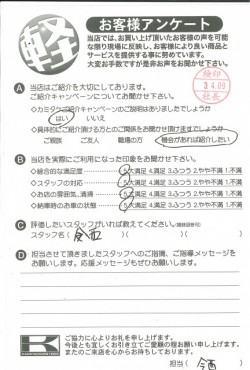 軽
お客様アンケート
当店では、お買い上げ頂いたお客様の声を可能
な限り現場に反映し、お客様により良い商品と
サービスを提供する事に努めています。
大変お手数ですが是非お声をお聞かせ下さい。
検印
3 4.09
社長
A 当店はご紹介を大切にしております。
ご紹介キャンペーンについてお聞かせ下さい。
◇カミタケご紹介キャンペーンのご説明はありましたでしょうか
はい いいえ
◇具体的にご紹介頂ける方とのご関係をお聞かせ頂けますでしょうか
ご親族 ご友人 職場の方 機会があれば紹介したい
B 当店を実際にご利用になった印象をお聞かせ下さい。
◇総合的な満足度 5.大満足 4.満足 3.ふつう 2.やや不満 1.不満
◇スタッフの対応 5.大満足 4.満足 3.ふつう 2.やや不満 1.不満
◇お店の雰囲気、清掃 5.大満足 4.満足 3.ふつう 2.やや不満 1.不満
◇納車時のお車の状態 5.大満足 4.満足 3.ふつう 2.やや不満 1.不満
C 評価したいスタッフがいれば教えてください。
スタッフ名( 今西 )( )( )
D 担当させて頂きましたスタッフへのご指摘、ご指導メッセージを
お願いします。応援メッセージもぜひお願いします。
K
ご協力に心よりお礼を申し上げます。
今後とも宜しくお引き立てご愛顧の程お願い申し上げます。
またのご来店を心からお待ちしております。
担当( 今西 )